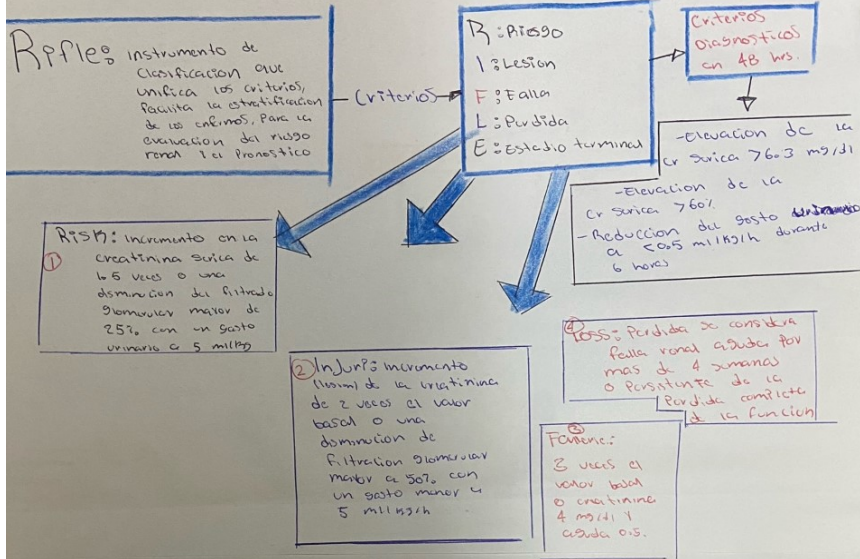 Rifle: instrumento de
clasificacion que
unifica los criterios,
facilita la estratificacion
de los enfrmos, para la
evaluacion del riesgo
renal y el pronostico
Criterios
R: Riesgo
I: Lesion
F: Falla
L: Perdida
E: Estadio terminal
Criterios
Diagnosticos
en 48 hrs.
-Elevacion de la
cr serica >60.3 mg/dl
-Elevacion de la
cr serica >60%
-Reduccion del gasto
a <0.5 ml/kg/h durante
6 horas
Risk: incremento en la
1 creatinina serica de
1.5 veces o una
disminucion del filtrado
glomerular mayor de
25% con un gasto
urinario a 5 ml/kg
2 Injury: incremento
(lesion) de la creatinina
de 2 veces el valor
basal o una
disminucion de
filtracion glomerular
mayor a 50% con
un gasto menor a
5 ml/kg/h
4
Poss: Perdida se considera
falla renal aguda por
mas de 4 semanas
o persistente de la
perdida completa
de la funcion
3
3 veces el
valor basal
o creatinina
4 mg/dl y
aguda 0.5.